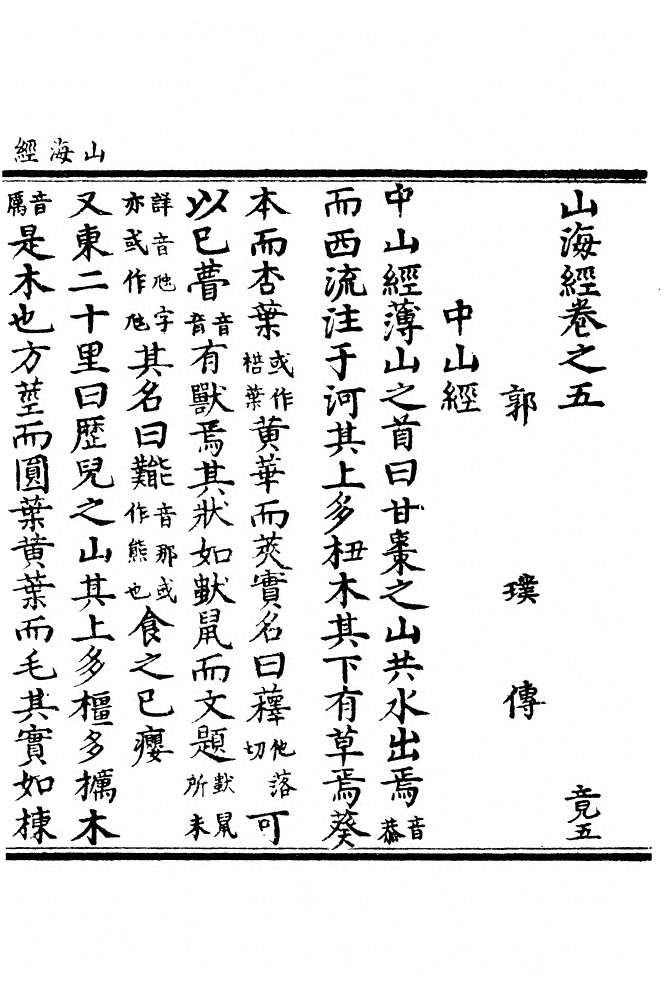 山海經
山海經卷之五 竟五
郭璞傳
中山經
中山經薄山之首曰甘棗之山共水出焉音恭
而西流注于河其上多杻木其下有草焉葵
本而杏葉或作楛葉黄華而莢實名曰蘀他落切可
以已瞢音音有獸焉其狀如㺃鼠而文題㺃鼠所未
詳音虺字亦或作虺其名曰㔮音那或作熊也食之已癭
又東二十里曰歷兒之山其上多橿多櫔木
音厲是木也方莖而圓葉黄葉而毛其實如楝